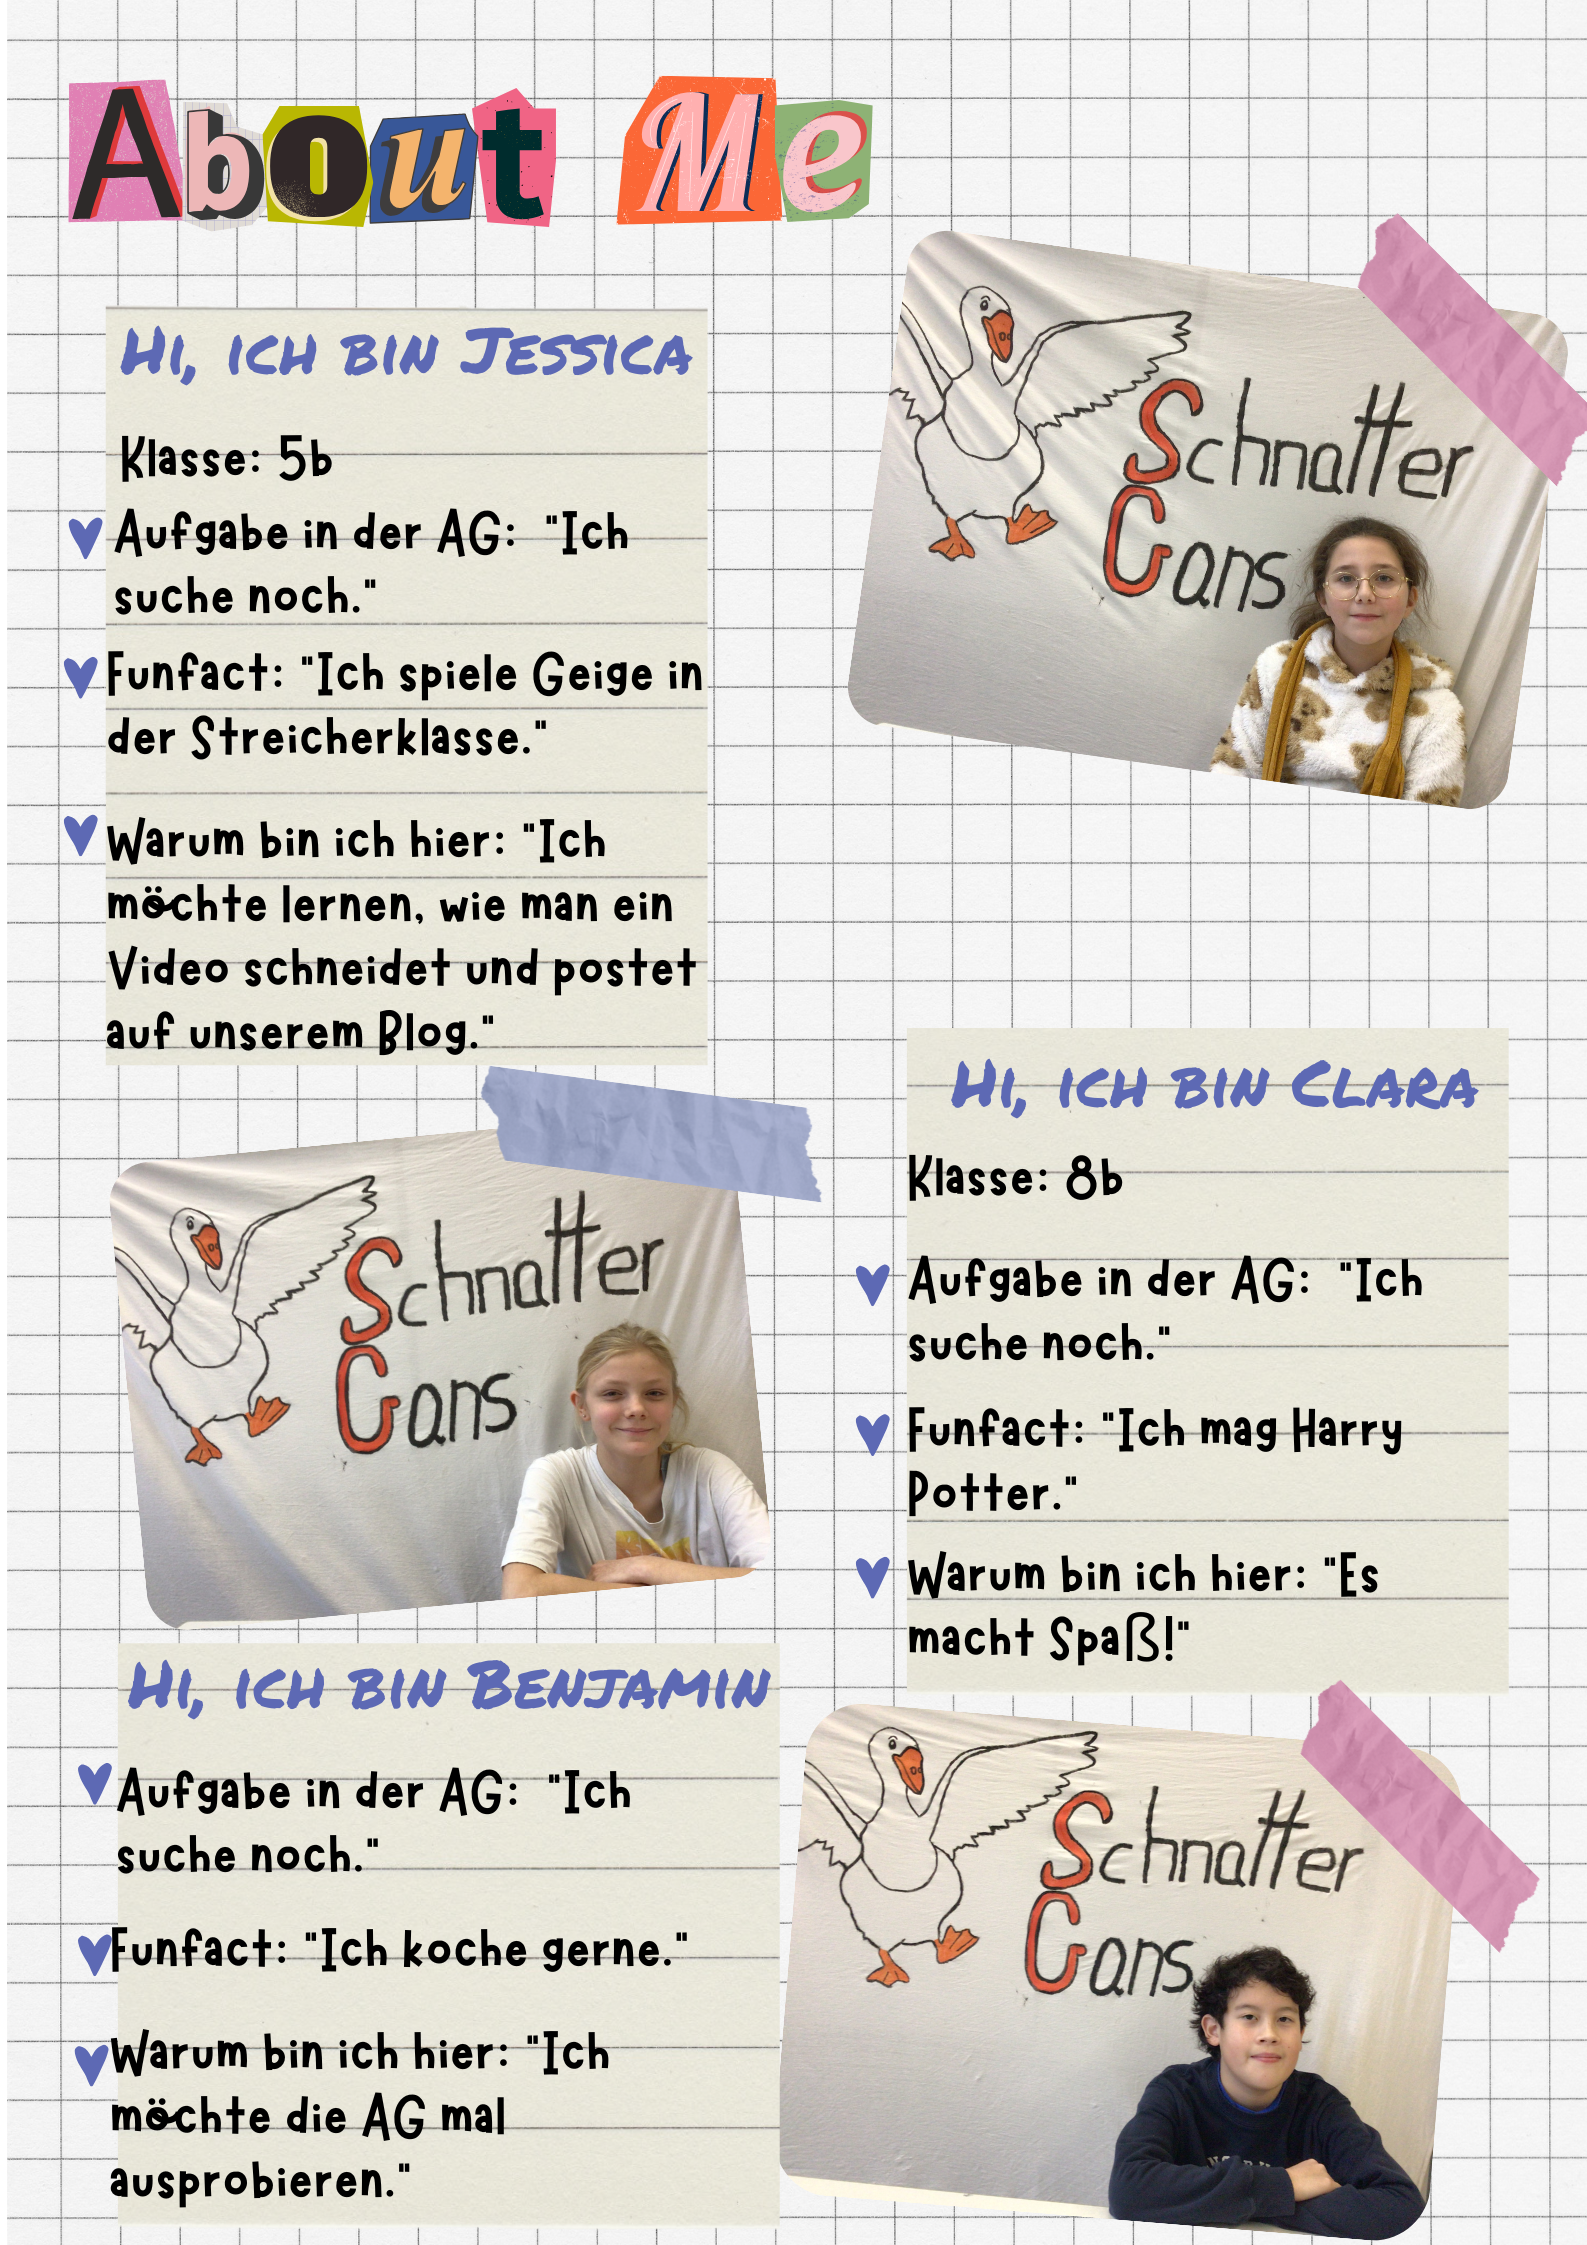 About Me
Hi, ich bin Jessica
Klasse: 5b
Aufgabe in der AG: "Ich
suche noch."
Funfact: "Ich spiele Geige in
der Streicherklasse."
Warum bin ich hier: "Ich
möchte lernen, wie man ein
Video schneidet und postet
auf unserem Blog."
Schnatter
Gans
Hi, ich bin Clara
Klasse: 8b
Aufgabe in der AG: "Ich
suche noch."
Funfact: "Ich mag Harry
Potter."
Warum bin ich hier: "Es
macht Spaß!"
Schnatter
Gans
Hi, ich bin Benjamin
Aufgabe in der AG: "Ich
suche noch."
Funfact: "Ich koche gerne."
Warum bin ich hier: "Ich
möchte die AG mal
ausprobieren."
Schnatter
Gans